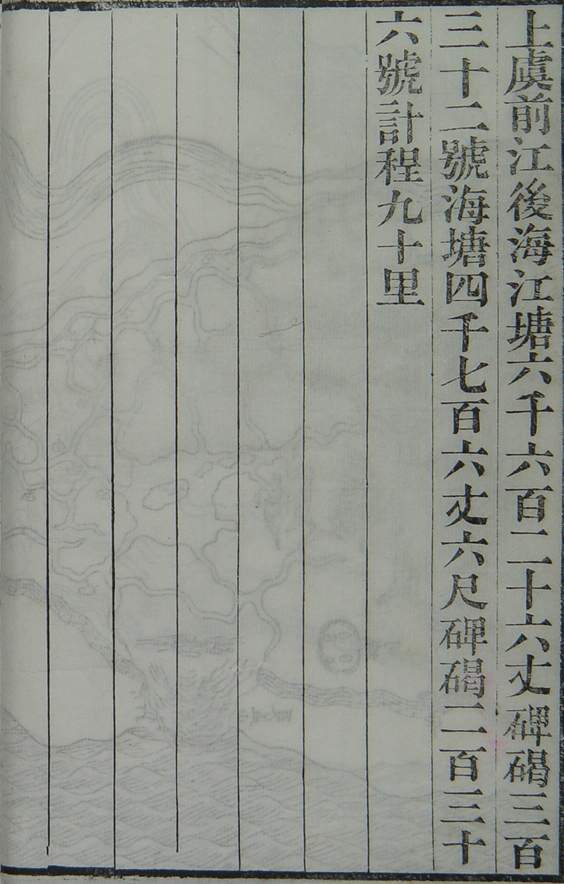 上虞前江後海江塘六千六百二十六丈碑碣三百
三十二號海塘四千七百六丈六尺碑碣二百三十
六號計程九十里